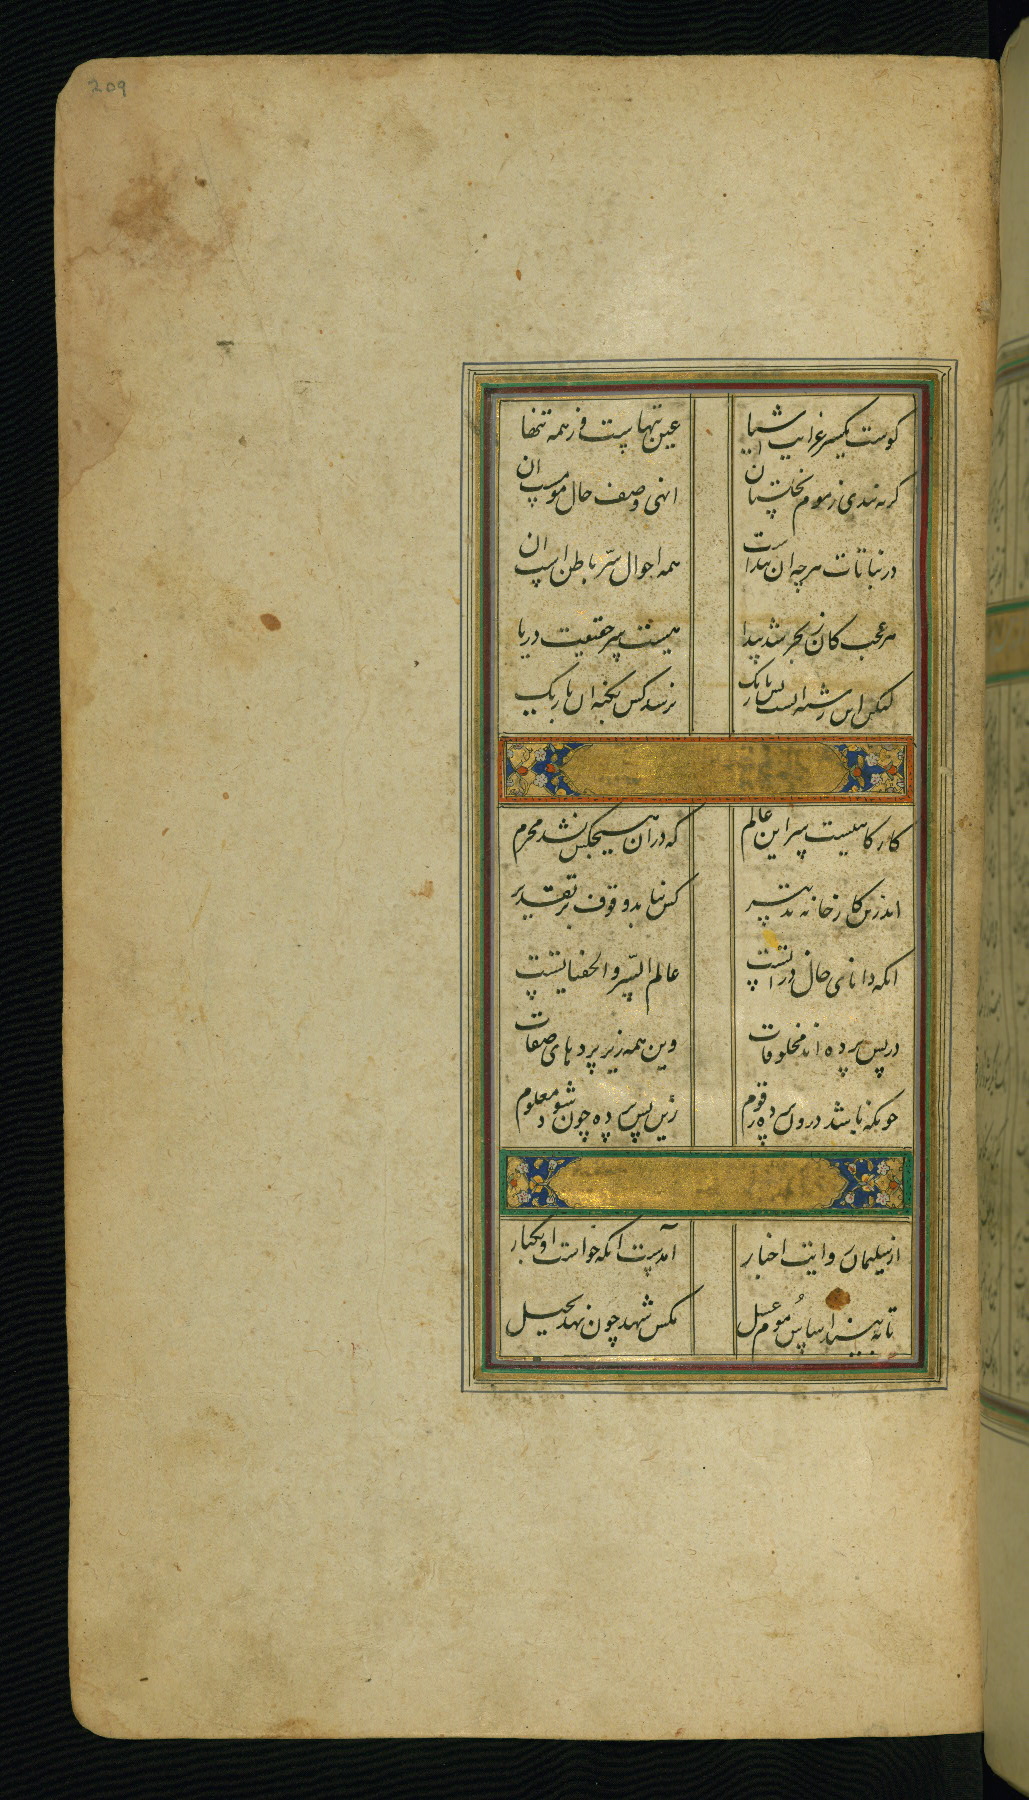 209
کوست یکسر غرایب اشیا
عین تنهاست در همه تنها
کر نه بندی ز موم نخلستان
انهی وصف حال مومستان
در نباتات هرچه ان پیداست
همه احوال سر باطن
هر عجب کان ز بحر شد پیدا
هست سر حقیقت دریا
لیکن این رشته است بس باریک
نرسد کس بکنه ان باریک
کار کاهیست سر این عالم
که دران هیچکس نشد محرم
اندرین کارخانه تدبیر
کس نیابد وقوف بر تقدیر
انکه دانای حال
عالم السر و الخفیات
در پس پرده اند مخلوقات
وین همه زیر پردهای صفات
چونکه باشد درون پرده رقوم
زین پس پرده چون شود معلوم
از سلیمان روایت اخبار
امدست انکه خواست او یکبار
تا به بیند اساس موم عسل
مکس شهد چون نهد بحیل